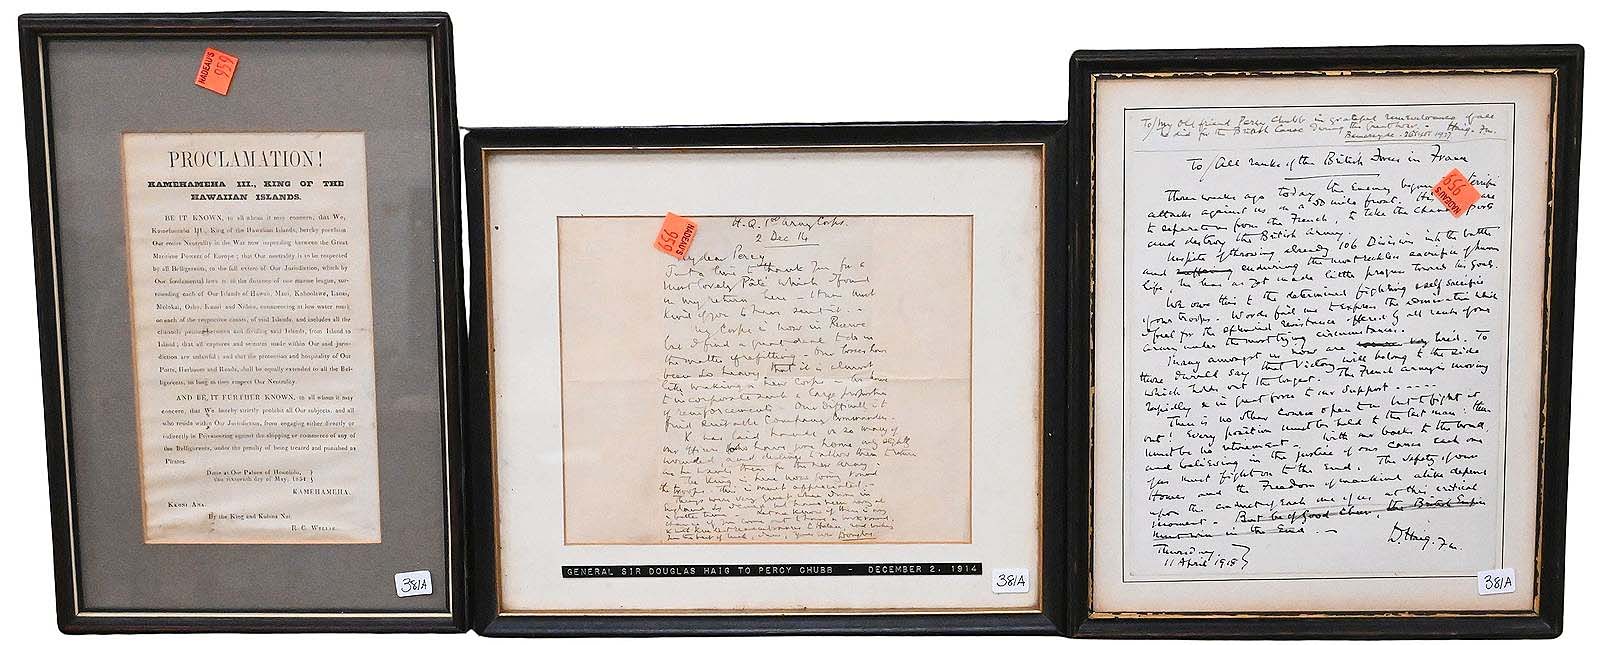 NADEAU'S
959
PROCLAMATION!
KAMEHAMEHA III., KING OF THE
HAWAIIAN ISLANDS.
BE IT KNOWN, to all whom it may concern, that We,
Kamehameha III., King of the Hawaiian Islands, hereby proclaim
Our entire Neutrality in the War now impending between the Great
Maritime Powers of Europe; that Our Neutrality is to be respected
by all Belligerents, to the full extent of Our Jurisdiction, which by
Our fundamental laws is to the distance of one marine league, sur-
rounding each of Our Islands of Hawaii, Maui, Kahoolawe, Lanai,
Molokai, Oahu, Kauai and Niihau, commencing at low water mark
on each of the respective coasts, of said Islands, and includes all the
channels passing between and dividing said Islands, from Island to
Island; that all captures and seizures made within Our said juris-
diction are unlawful; and that the protection and hospitality of Our
Ports, Harbours and Roads, shall be equally extended to all the Bel-
ligerents, so long as they respect Our Neutrality.
AND BE IT FURTHER KNOWN, to all whom it may
concern, that We hereby strictly prohibit all Our subjects, and all
who reside within Our Jurisdiction, from engaging either directly or
indirectly in Privateering against the shipping or commerce of any of
the Belligerents, under the penalty of being treated and punished as
Pirates.
Done at Our Palace of Honolulu, }
this sixteenth day of May, 1854. }
KAMEHAMEHA.
KEONI ANA.
By the King and Kuhina Nui.
R. C. WYLLIE.
381A
NADEAU'S
959
H.Q. 1st Army Corps.
2 Dec 14
My dear Percy
Just a line to thank you for a
most lovely Pâté which I found
on my return here - It was most
kind of you to have sent it. -
My Corps is now in Reserve
but I find a great deal to do in
the matter of refitting - Our losses have
been so heavy that it is almost
like making a new Corps - we have
to incorporate such a large proportion
of reinforcements - Our difficulty is to
find suitable Company Commanders.
K has laid hands on so many of
our officers who have gone home only slightly
wounded and declines to allow them to return
as he wants them for the new army.
The King is here now going round
the troops. this is much appreciated -
GENERAL SIR DOUGLAS HAIG TO PERCY CHUBB - DECEMBER 2, 1914
381A
To/My old friend Percy Chubb in grateful remembrance of all
he did for the British Cause during the Great War. Haig. Fm.
Bemersyde. 1927
To/All ranks of the British Forces in France
NADEAU'S
959
Three weeks ago today the Enemy began terrific
attacks against us on a 50 mile front. His are
to separate us from the French, to take the Channel ports
and destroy the British Army.
In spite of throwing already 106 Divisions into the battle
and enduring the most reckless sacrifice of human
life, he has as yet made little progress towards his goals.
We owe this to the determined fighting & self sacrifice
of our troops. Words fail me to express the admiration which
I feel for the splendid resistance offered by all ranks of our
Army under the most trying circumstances.
Many amongst us now are tired. To
those I would say that Victory will belong to the side
which holds out the longest. The French Army is moving
rapidly & in great force to our Support -----
There is no other course open to us but to fight it
out! Every position must be held to the last man: there
must be no retirement - With our backs to the wall,
and believing in the justice of our cause each one
of us must fight on to the End. The Safety of our
Homes and the Freedom of mankind alike depend
upon the conduct of each one of us at this critical
moment - But be of good cheer, the British Empire
must win in the End. -
D. Haig. Fm.
Thursday }
11 April 1918 }
381A